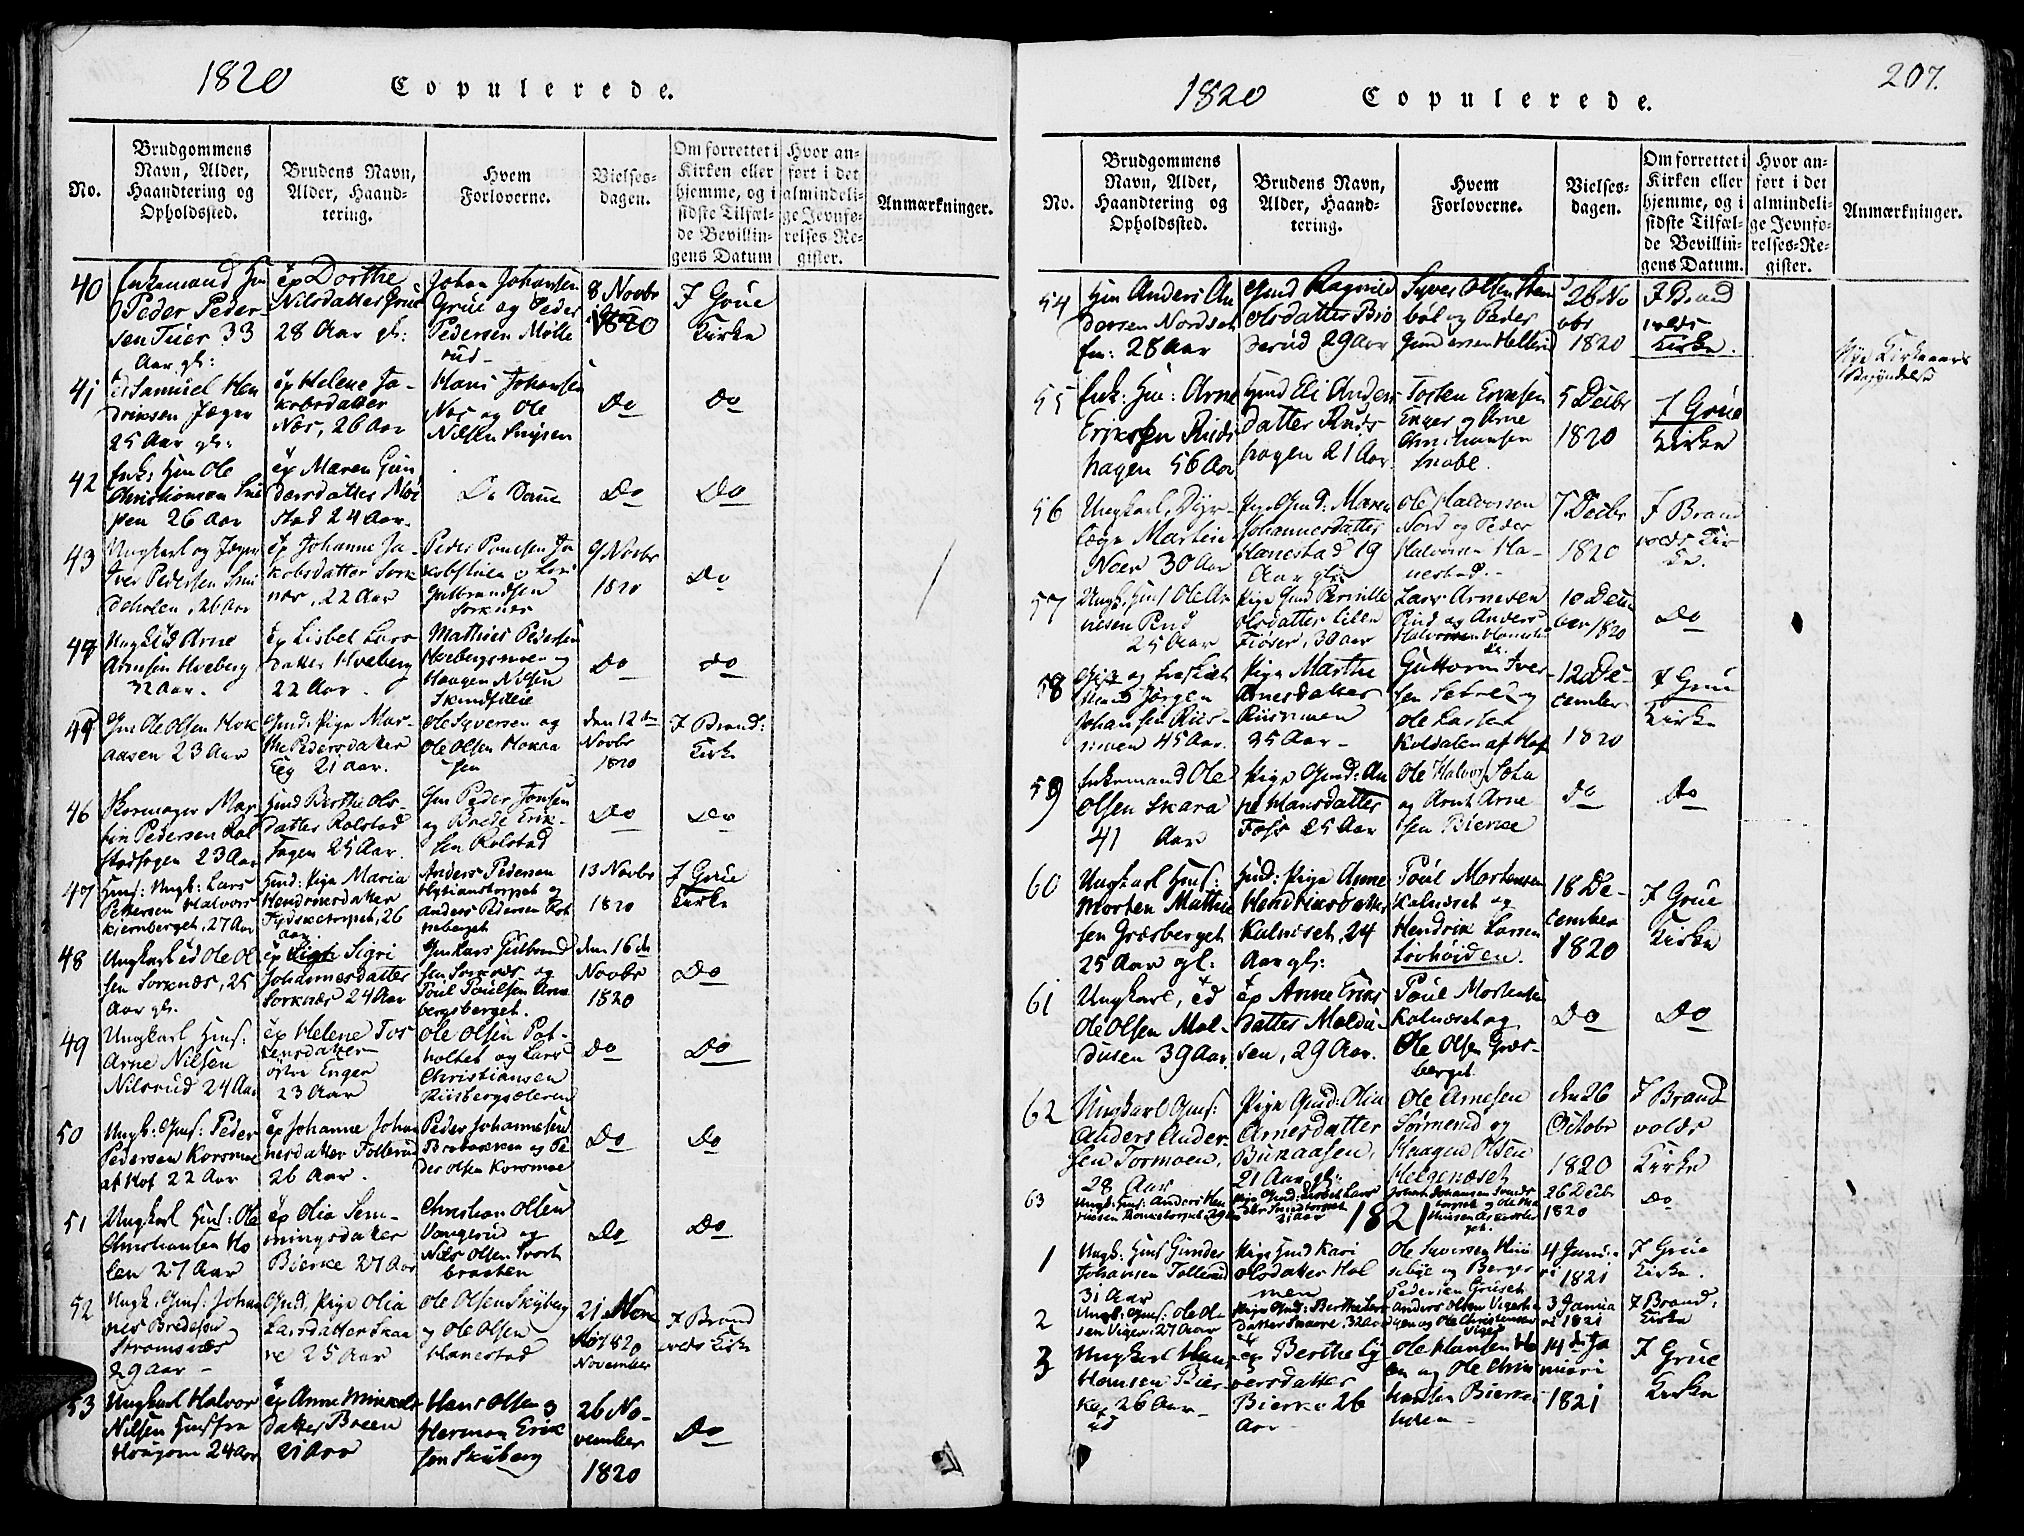 1820 Copulerede.
No.
Brudgommens Navn, Alder, Haandtering og Opholdssted.
Brudens Navn, Alder, Haandtering.
Hvem Forloverne.
Vielsesdagen.
Om forrettet i Kirken eller hjemme, og i sidste Tilfælde Bevillingens Datum
Hvor anført i det almindelige Jevnførelses-Register.
Anmærkninger.
40
Enkemand
Peder Peder-
sen Tuer 33
Aar gl:
ep Dorthe
Nilsdatter Grue
28 Aar gl:
Johan Johansen
Grue og Peder
Pedersen Molle
rud
8 Novbr
1820
I Grue
Kirke
41
Samuel Hen
driksen Jæger
25 Aar gl:
ep Helene Ja-
kobsdatter
Næs, 26 Aar
Hans Johansen
Næs og Ole
Nilsen
Do
Do
42
Enk: Hm Ole
Christiansen
26 Aar
ep Maren Gun
dersdatter
stad 24 Aar.
De Samme
Do
Do
43
Ungkarl og Jæger
Iver Pedersen
26 Aar
ep Johanne Ja-
kobsdatter Sork
næs, 22 Aar
Peder
og Lars
Gulbrandsen
Sorknæs
9 Novbr
1820
Do
44
Arne
Arnesen Hveberg
32 Aar.
ep Lisbet Lars
datter Hveberg
22 Aar.
Mathies Pedersen
Hvebergsmoen og
Haagen Nilsen
Do
Do
45
Ole Olsen Hok
aasen 23 Aar
Pige Mar-
the Pedersdatter
Eg 21 Aar.
Ole Syversen og
Ole Olsen Hokaa
sen
den 12te
Novbr
1820
I Brand:
Kirke
46
Skomager Mar
tin Pedersen Rol
stadhagen 23 Aar
Berthe Ols-
datter Rolstad
hagen 25 Aar.
Peder Jonsen
og Brede Erik-
sen Rolstad
Do
Do
47
Hms: Ungk: Lars
Pettersen Halvors
kjernberget, 27 Aar
Pige Maria
Hendriksdatter
Tydsketorpet, 26
Aar
Anders Pedersen
og
Anders Pedersen Rot
neberget
13 Novbr
1820
I Grue
Kirke
48
Ungkarl Ole Ol
sen Sorknæs, 25
Aar gl.
ep Sigri
Johannesdatter
Sorknæs 24 Aar
Lars Gulbrand
sen Sorknæs og
Poul Poulsen Arne
bergsberget.
den 16de
Novbr
1820
Do
49
Ungkarl Hms:
Arne Nilsen
Nilsrud 24 Aar
ep Helene Tos
tensdatter
østre Enger
23 Aar
Ole Olsen Pot-
holtet og Lars
Christiansen
Riisbergsæteren
Do
Do
50
Ungk: Gms: Peder
Pedersen Korsmoe
at Hof 22 Aar
ep Johanne Johan
nesdatter Tollerud
26 Aar.
Peder Johannesen
og Pe-
der Olsen Korsmoe
Do
Do
51
Ungkarl Hms: Ole
Christiansen Ho
len 27 Aar
ep Olia Sem-
mingsdatter
Bierke 27 Aar
Christian Olsen
Vangerud og
Nils Olsen Svart
braaten
Do
Do
52
Ungk. Gms: Johan
nes Bredesen
Strømsnæs
29 Aar
Gmd, Pige Olia
Larsdatter Skaa
re 25 Aar
Ole Olsen Skyberg
og Ole Olsen
Hanestad
21
1820
November
I Brand
volds Kirke
53
Ungkarl Halvor
Nilsen Hms fra
Hougom 24 Aar
ep Anne
datter Breen
21 Aar
Hans Olsen og
Herman Erik
sen Skyberg
26 No-
vember
1820
Do
1820 Copulerede. 207.
No.
Brudgommens Navn, Alder, Haandtering og Opholdssted.
Brudens Navn, Alder, Haandtering.
Hvem Forloverne.
Vielsesdagen.
Om forrettet i Kirken eller hjemme, og i sidste Tilfælde Bevillingens Datum.
Hvor anført i det almindelige Jevnførelses-Register.
Anmærkninger.
54
Anders An
dersen Nordset
28 Aar
Gmd Ragnild
Olsdatter
29 Aar
Syver Olsen
bøl og Peder
Gundersen Hellerud
26 No
vbr
1820
I Brand
volds
Kirke.
55
Enk: Hm: Arne
Eriksen Ruds
hagen 56 Aar
Eli Anders
datter Ruds
hagen 21 Aar.
Torsten
Enger og Arne
Christiansen
5 Decbr
1820
I Grue
Kirke
56
Ungkarl, Dyr-
læge Martin
Noer 30 Aar
Pige Gmd: Maren
Johannesdatter
Hanestad 19
Aar gl:
Ole Halvorsen
Nord og Peder
Halvorsen Ha-
nestad.
7 Decbr
1820
I Brand
volds Kir
ke.
57
Ole Ar
nesen Rud
25 Aar
Pige Gmd Pernille
Olsdatter Lille
Fiøser, 30 Aar
Lars Arnesen
Rud og Anders
Halvorsen
10 Decem
ber 1820
Do
58
Jørgen
Johansen Riis-
moen 45 Aar.
Pige Marthe
Arnesdatter
Riismoen
35 Aar
Guttorm Iver
sen og
Ole Larsen
Koldalen af Hof
12 De-
cember
1820
I Grue
Kirke
59
Enkemand Ole
Olsen Skara
41 Aar
Pige Gmd: An
ne Hansdatter
Foss 25 Aar
Ole Halvors
og Arnt Arne
sen Bierke
Do
Do
60
Ungkarl Hms:
Morten Mathie
sen Græsberget
25 Aar gl:
Hmd: Pige Anne
Hendriksdatter
Kalneset, 24
Aar gl:
Poul Mortensen
Kalneset og
Hendrik Larsen
Løvhøiden.
18 De-
cember
1820
I Grue
Kirke
61
Ungkarl, ed
Ole Olsen Mal-
dusen 39 Aar.
ep Anne Eriks
datter Maldu-
sen, 29 Aar.
Poul Mortensen
Kalneset og
Ole Olsen Græs-
berget
Do
Do
62
Ungkarl Gms:
Anders Ander
sen Tormoen,
28 Aar
Pige Gmd: Olia
Arnesdatter
Bunaasen,
21 Aar gl:
Ole Arnesen
Sørmerud og
Haagen Olsen
Helgeneset
den 26
Octobr
1820
I Brand
volds
Kirke
63
Ungk: Hms: Anders
Pige Gmd: Lisbet Lars
21 Aar
26 Decbr
1820
Do
1821
1
Ungk: Hms Gunder
Johansen Tollerud
31 Aar
Pige Hmd Kari
Olsdatter Hol
men
Ole Syversen
og Berger
Pedersen Gruset
4 Janu-
ri 1821
I Grue
Kirke.
2
Ungk: Gms: Ole Ol
sen Viger, 27 Aar
Pige Gmd: Berthe Lars
datter Skaare, 32 Aar
Anders Olsen
og Ole Christensen
Viger
3 Janua
ri 1821
I Brand:
Kirke
3
Ungkarl Hans
Hansen Bier-
ke 26 Aar
ep Berthe
versdatter
Bierke 26
Aar
Ole Hansen
og Ole Chris
tiansen Bierke
14de Ja
nuari
1821
I Grue
Kirke